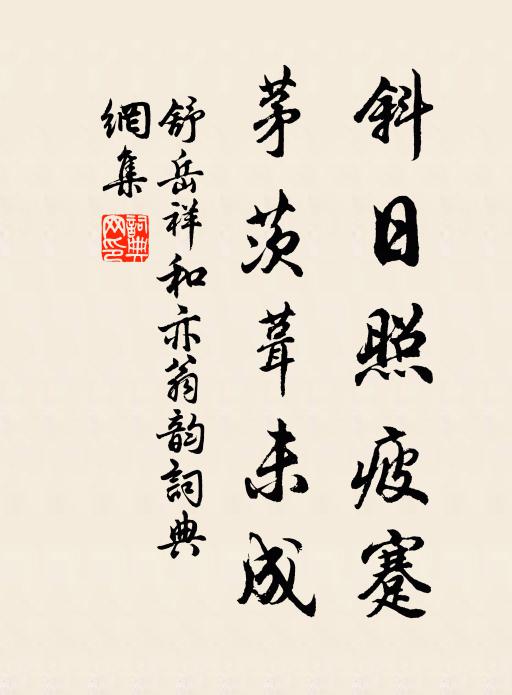 斜日照疲蹇
茅茨葺未成
舒岳祥和亦翁韵詞典
網集
詞典
网印